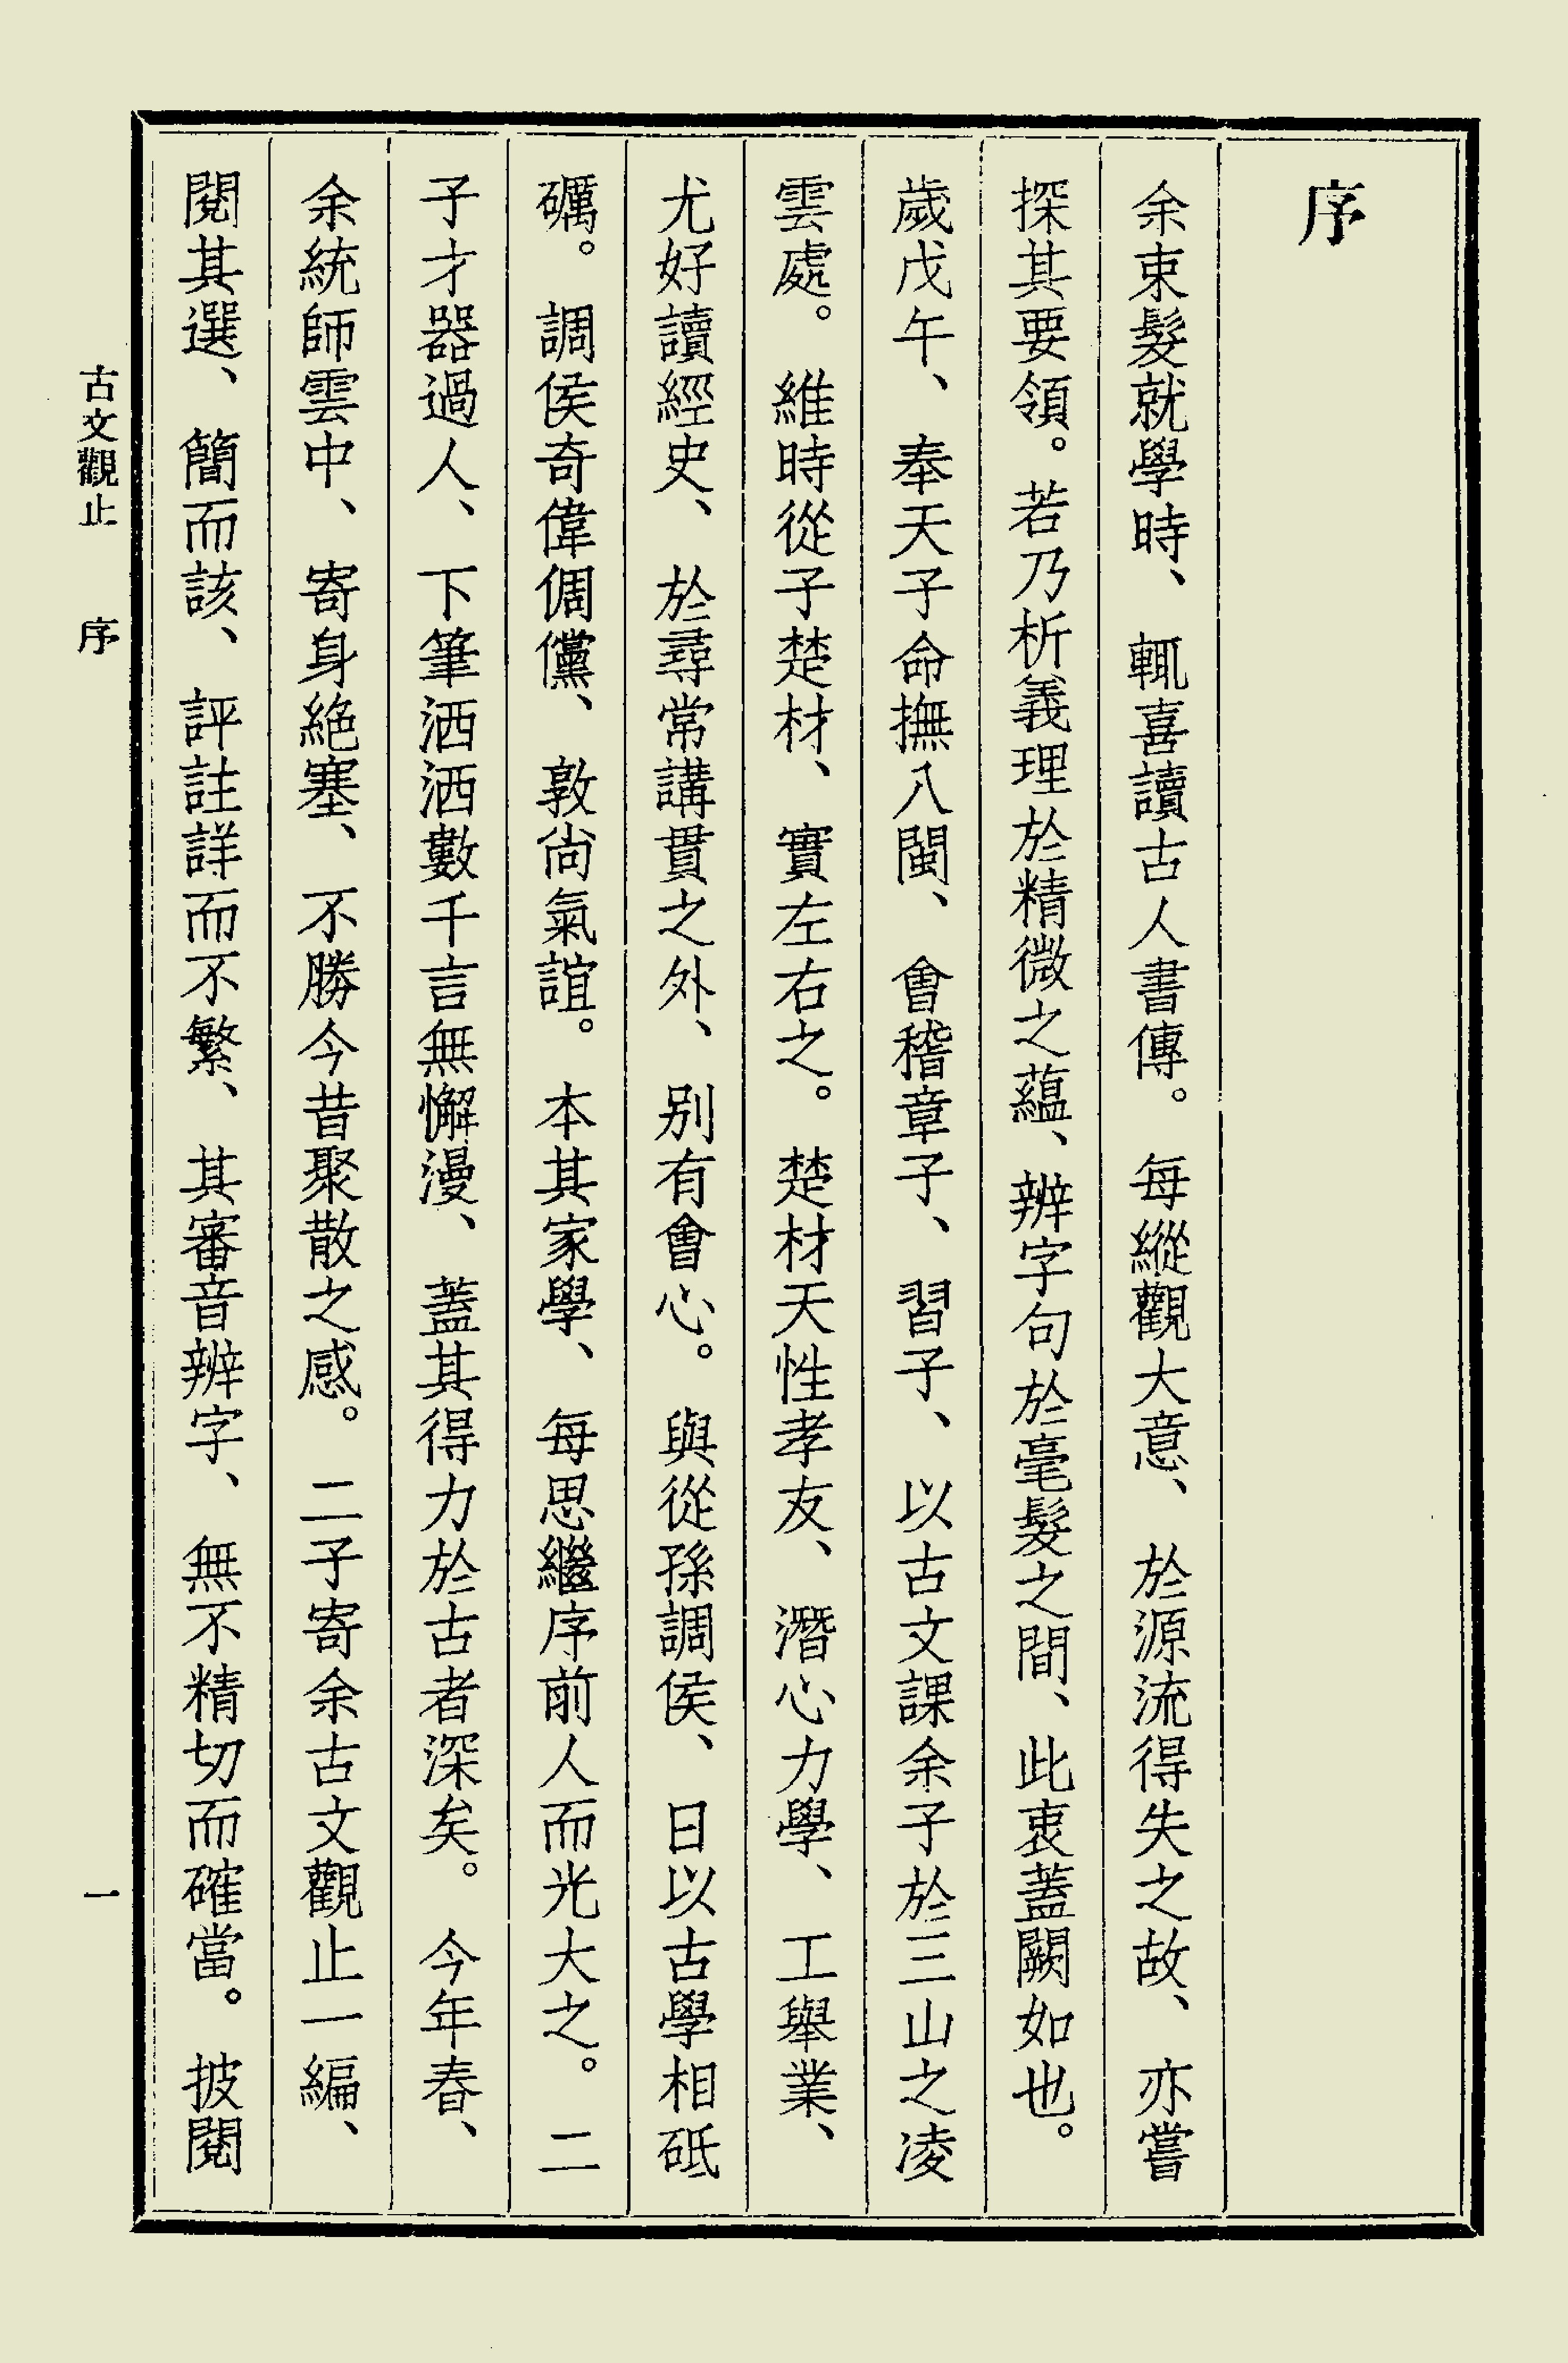 序
余束髮就學時、輒喜讀古人書傳。每縱觀大意、於源流得失之故、亦嘗
探其要領。若乃析義理於精微之蘊、辨字句於毫髮之間、此衷蓋闕如也。
歲戊午、奉天子命撫八閩、會稽章子、習子、以古文課余子於三山之凌
雲處。維時從子楚材、實左右之。楚材天性孝友、潛心力學、工舉業、
尤好讀經史、於尋常講貫之外、别有會心。與從孫調侯、日以古學相砥
礪。調侯奇偉倜儻、敦尙氣誼。本其家學、每思繼序前人而光大之。二
子才器過人、下筆洒洒數千言無懈漫、蓋其得力於古者深矣。今年春、
余統師雲中、寄身絶塞、不勝今昔聚散之感。二子寄余古文觀止一編、
閱其選、簡而該、評註詳而不繁、其審音辨字、無不精切而確當。披閱
古文觀止　序
一